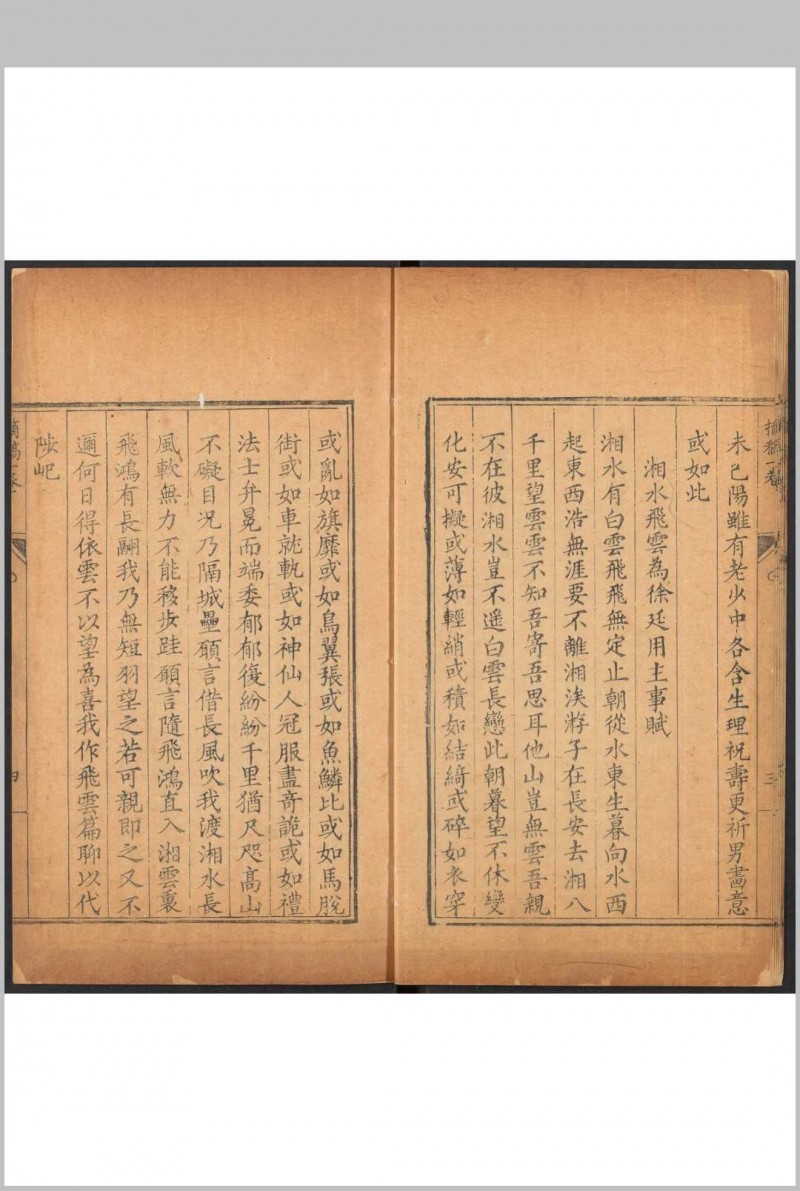 未已陽雖有老少中各含生理祝壽更祈男畵意
或如此
湘水飛雲為徐廷用主事賦
湘水有白雲飛飛無定止朝從水東生暮向水西
起東西浩無涯要不離湘涘游子在長安去湘八
千里望雲雲不知吾寄吾思耳他山豈無雲吾親
不在彼湘水豈不遥白雲長戀此朝暮望不休變
化安可擬或薄如輕綃或積如結綺或碎如衣穿
或亂如旗靡或如鳥翼張或如魚鱗比或如馬脫
銜或如車就軌或如神仙人冠服盡奇詭或如禮
法士弁冕而端委郁郁復紛紛千里猶尺咫髙山
不礙目况乃隔城壘願言借長風吹我渡湘水長
風軟無力不能移步跬願言隨飛鴻直入湘雲裏
飛鴻有長翮我乃無短羽望之若可親即之又不
邇何日得依雲不以望為喜我作飛雲篇聊以代
陟屺